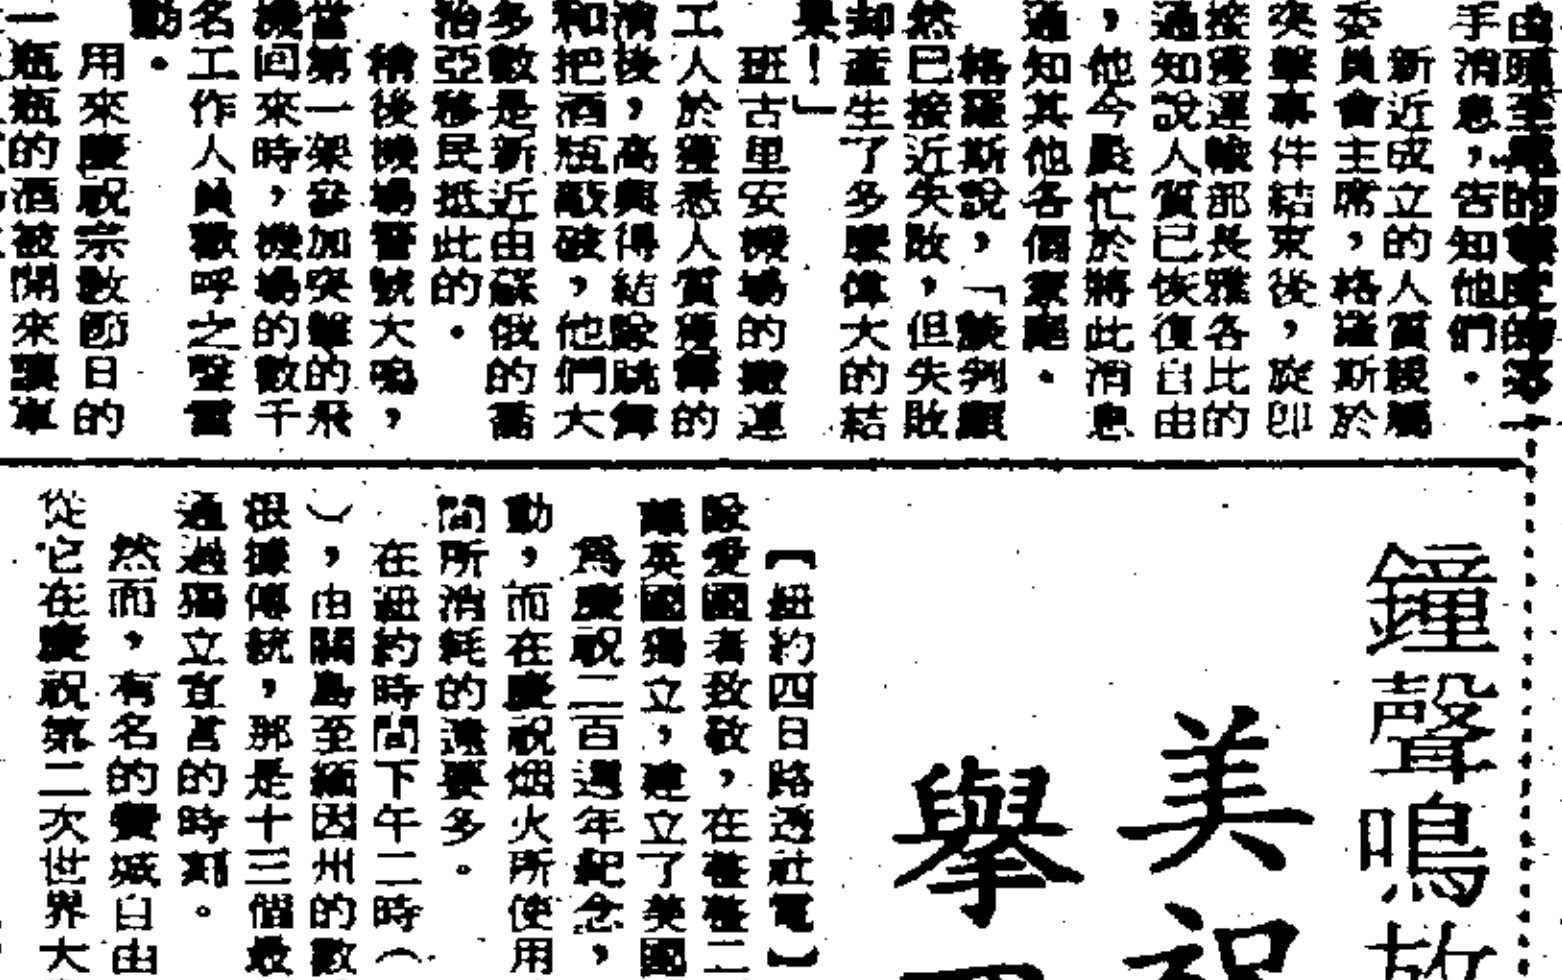 手消息，告知他們。
新近成立的人質親屬
委員會主席，格羅斯於
突擊事件結束後，旋即
接獲運輸部長雅各比的
通知說人質已恢復自由
，他今晨忙於將此消息
通知其他各個家庭。
格羅斯說，「談判顯
然已接近失敗，但失敗
却產生了多麼偉大的結
果！」
班古里安機場的搬運
工人於獲悉人質獲釋的
消後，高興得結隊跳舞
和把酒瓶敲破，他們大
多數是新近由蘇俄的喬
治亞移民抵此的。
稍後機場警號大鳴，
當第一架參加突擊的飛
機回來時，機場的數千
名工作人員歡呼之聲雷
動。
用來慶祝宗教節日的
一瓶瓶的酒被開來讓軍
鐘聲鳴放
美祝
舉
【紐約四日路透社電】
愛國者致敬，在整整二
離英國獨立，建立了美國
為慶祝二百週年紀念，
動，而在慶祝烟火所使用
間所消耗的還要多。
在紐約時間下午二時（
），由關島至緬因州的數
根據傳統，那是十三個最
通過獨立宣言的時刻。
然而，有名的費城自由
從它在慶祝第二次世界大